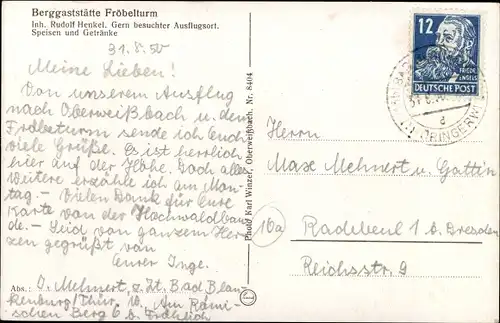 Berggaststätte Fröbelturm
Inh. Rudolf Henkel. Gern besuchter Ausflugsort.
Speisen und Getränke
31.8.50
Meine Lieben!
Von unserem Ausflug
nach Oberweißbach u. dem
Fröbelturm sende ich Euch
viele Grüße. Es ist herrlich
hier auf der Höhe. Doch alles
Weitere erzähle ich am Mon-
tag. – Vielen Dank für Eure
Karte von der Hochwaldbau
de. – Seid von ganzem Her-
zen gegrüßt von
Eurer Inge.
Abs.: I. Mehnert, z. Zt. Bad Blan-
kenburg/Thür. W. Am Römi-
schen Berg 6 b. Fröhlich
Photo Karl Winzer, Oberweißbach. Nr. 8404
12
FRIEDR.
ENGELS
DEUTSCHE POST
Herrn
Max Mehnert u. Gattin
10a
Radebeul 1 b. Dresden
Reichsstr. 9